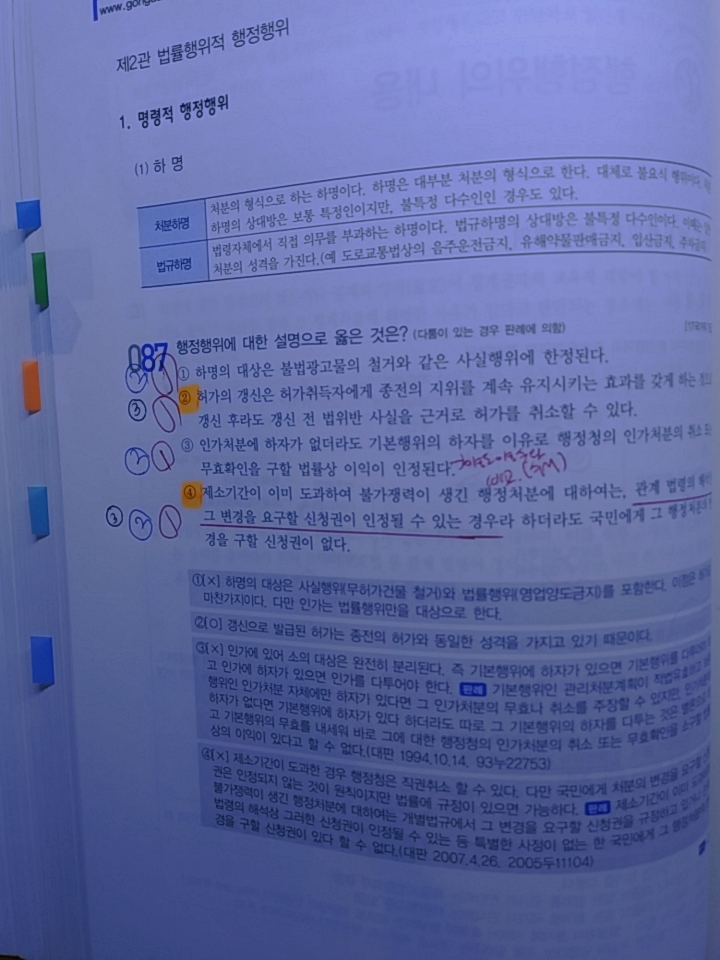 www.gong
제2관 법률행위적 행정행위
1. 명령적 행정행위
(1) 하 명
처분하명
처분의 형식으로 하는 하명이다. 하명은 대부분 처분의 형식으로 한다. 대체로 불요식 행위이다.
하명의 상대방은 보통 특정인이지만, 불특정 다수인인 경우도 있다.
법규하명
법령자체에서 직접 의무를 부과하는 하명이다. 법규하명의 상대방은 불특정 다수인이다.
처분의 성격을 가진다.(예 도로교통법상의 음주운전금지, 유해약물판매금지, 입산금지,
087 행정행위에 대한 설명으로 옳은 것은? (다툼이 있는 경우 판례에 의함)
① 하명의 대상은 불법광고물의 철거와 같은 사실행위에 한정된다.
② 허가의 갱신은 허가취득자에게 종전의 지위를 계속 유지시키는 효과를 갖게 하는
갱신 후라도 갱신 전 법위반 사실을 근거로 허가를 취소할 수 있다.
③ 인가처분에 하자가 없더라도 기본행위의 하자를 이유로 행정청의 인가처분의 취소
무효확인을 구할 법률상 이익이 인정된다.
④ 제소기간이 이미 도과하여 불가쟁력이 생긴 행정처분에 대하여는, 관계 법령의
그 변경을 요구할 신청권이 인정될 수 있는 경우라 하더라도 국민에게 그 행정처분의
경을 구할 신청권이 없다.
③ ② ①
①[×] 하명의 대상은 사실행위(무허가건물 철거)와 법률행위(영업양도금지)를 포함한다. 이점은
마찬가지이다. 다만 인가는 법률행위만을 대상으로 한다.
②[O] 갱신으로 발급된 허가는 종전의 허가와 동일한 성격을 가지고 있기 때문이다.
③[×] 인가에 있어 소의 대상은 완전히 분리된다. 즉 기본행위에 하자가 있으면 기본행위를
고 인가에 하자가 있으면 인가를 다투어야 한다. 판례 기본행위인 관리처분계획이
행위인 인가처분 자체에만 하자가 있다면 그 인가처분의 무효나 취소를 주장할 수 있지만,
하자가 없다면 기본행위에 하자가 있다 하더라도 따로 그 기본행위의 하자를 다투는 것은
고 기본행위의 무효를 내세워 바로 그에 대한 행정청의 인가처분의 취소 또는 무효확인을
상의 이익이 있다고 할 수 없다.(대판 1994.10.14. 93누22753)
④[×] 제소기간이 도과한 경우 행정청은 직권취소 할 수 있다. 다만 국민에게 처분의 변경을
권은 인정되지 않는 것이 원칙이지만 법률에 규정이 있으면 가능하다. 판례 제소기간이 이미
불가쟁력이 생긴 행정처분에 대하여는 개별법규에서 그 변경을 요구할 신청권을 규정하고
법령의 해석상 그러한 신청권이 인정될 수 있는 등 특별한 사정이 없는 한 국민에게 그
경을 구할 신청권이 있다 할 수 없다.(대판 2007.4.26. 2005두11104)